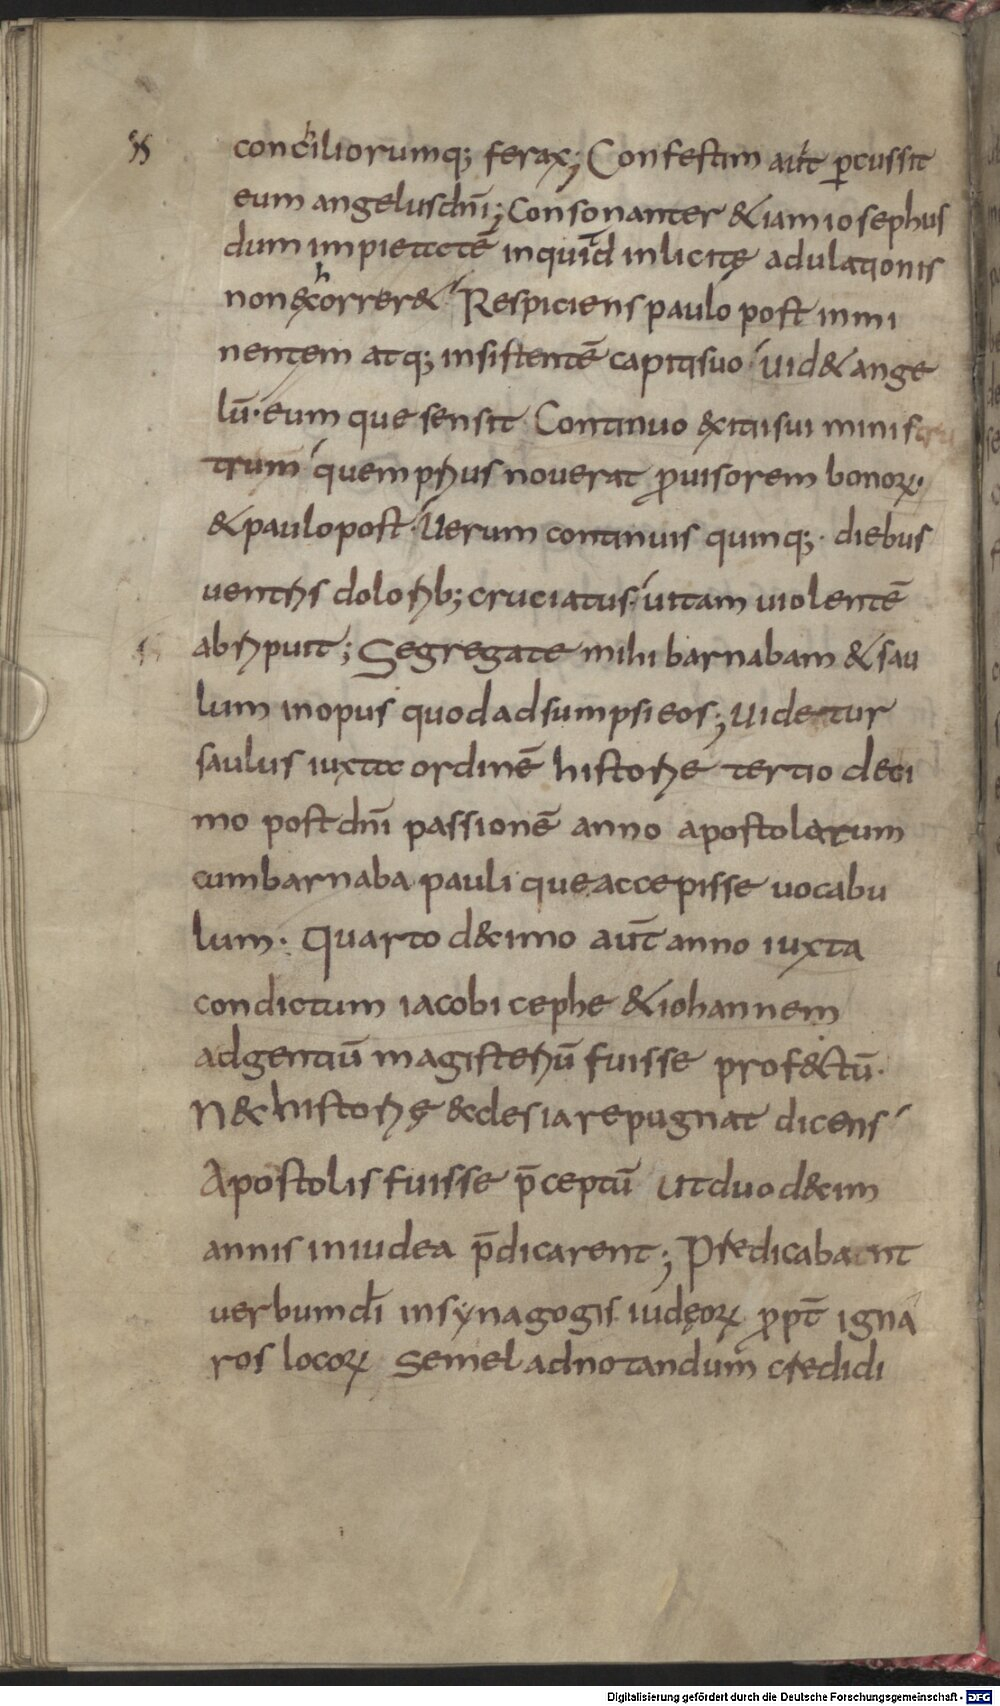 conchiliorumq; ferax; Confestim aut̄ ꝑcussit
eum angelus dn̄i; Consonanter & iam iosephus
dum impietatē inquid inlicitę adulationis
non exhorrer& Respiciens paulo post immi
nentem atq; insistentē capiti suo uid& ange
lū· eum que sensit Continuo exitii sui minis
trum quem prius nouerat ꝓuisorem bonoꝝ·
& paulo post· Uerum continuis quinq; diebus
uentris doloribꝫ cruciatus· uitam uiolentē
abripuit; Segregate mihi barnabam & sau
lum in opus quod adsumpsi eos; Uidetur
saulus iuxta ordinē historie tertio deci
mo post dn̄i passionē anno apostolatum
cum barnaba pauli que accepisse uocabu
lum· Quarto decimo aut̄ anno iuxta
condictum iacobi cephe & iohannem
ad gentiū magisteriū fuisse prof&ctū·
N& historię &clesia repugnat dicens
Apostolis fuisse p̄ceptū ut duod&im
annis in iudea p̄dicarent; Predicabant
uerbum dī in synagogis iudęoꝝ ꝓpt̄ igna
ros locoꝝ semel adnotandum credidi
Digitalisierung gefördert durch die Deutsche Forschungsgemeinschaft - DFG